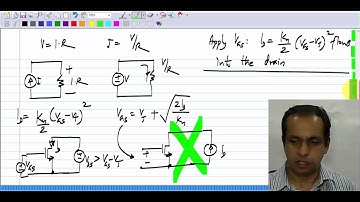 V = I·R
I = V/R
Apply V_GS: I_D = K_n/2 (V_GS-V_T)² flows
into the drain
I
+
I·R
-
V
V/R
I_D = K_n/2 (V_GS-V_T)²
V_GS = V_T + √(2I_D/K_n)
V_GS
V_DS > V_GS-V_T
+
-
I_D